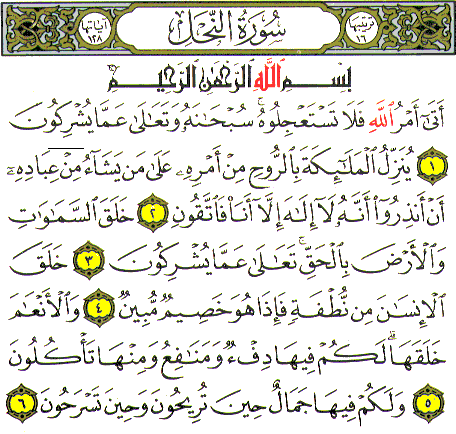 ترتيبها ١٦ سُورَةُ النَّحْلِ آياتها ١٢٨
بِسْمِ اللَّهِ الرَّحْمَنِ الرَّحِيمِ
أَتَىٰٓ أَمْرُ اللَّهِ فَلَا تَسْتَعْجِلُوهُ ۚ سُبْحَانَهُۥ وَتَعَالَىٰ عَمَّا يُشْرِكُونَ
١ يُنَزِّلُ الْمَلَٰٓئِكَةَ بِالرُّوحِ مِنْ أَمْرِهِۦ عَلَىٰ مَن يَشَآءُ مِنْ عِبَادِهِۦٓ
أَنْ أَنذِرُوٓا۟ أَنَّهُۥ لَآ إِلَٰهَ إِلَّآ أَنَا۠ فَاتَّقُونِ ٢ خَلَقَ السَّمَٰوَٰتِ
وَالْأَرْضَ بِالْحَقِّ ۚ تَعَٰلَىٰ عَمَّا يُشْرِكُونَ ٣ خَلَقَ
الْإِنسَٰنَ مِن نُّطْفَةٍ فَإِذَا هُوَ خَصِيمٌ مُّبِينٌ ٤ وَالْأَنْعَٰمَ
خَلَقَهَا ۗ لَكُمْ فِيهَا دِفْءٌ وَمَنَٰفِعُ وَمِنْهَا تَأْكُلُونَ
٥ وَلَكُمْ فِيهَا جَمَالٌ حِينَ تُرِيحُونَ وَحِينَ تَسْرَحُونَ ٦